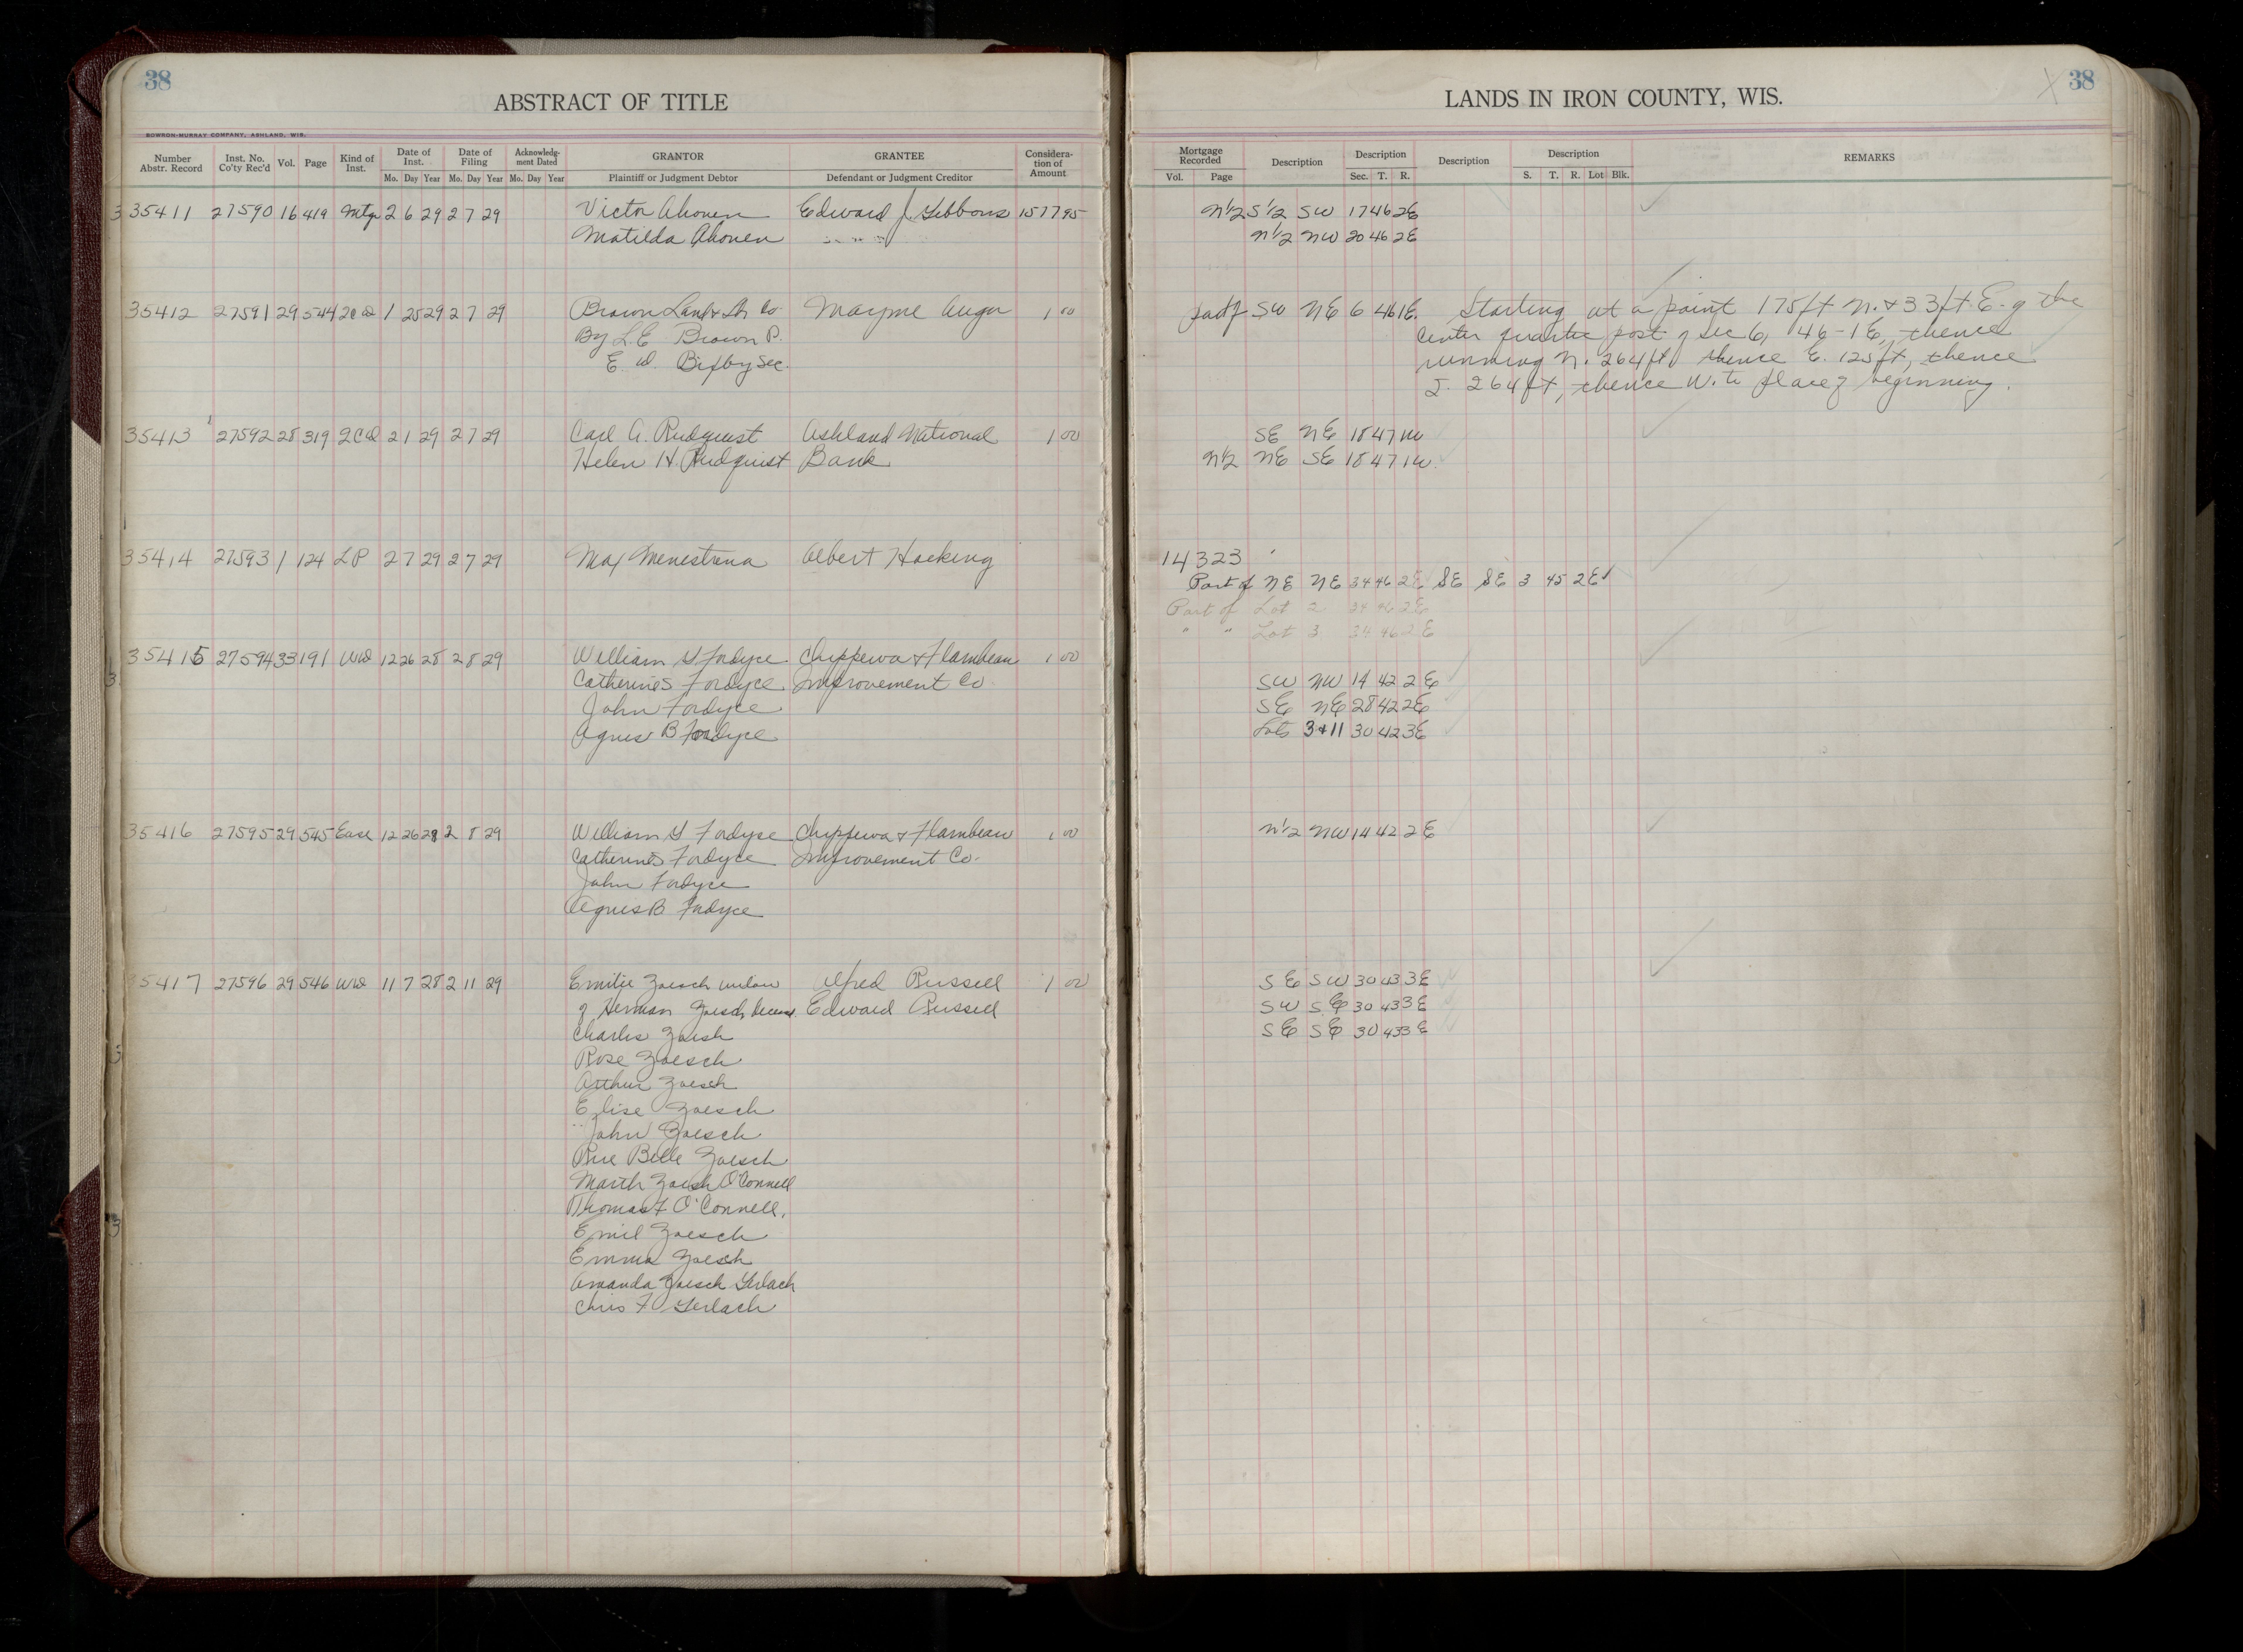 38
ABSTRACT OF TITLE
BOWRON-MURRAY COMPANY, ASHLAND, WIS.
Number Abstr. Record Inst. No. Co'ty Rec'd Vol. Page Kind of Inst. Date of Inst. Mo. Day Year Date of Filing Mo. Day Year Acknowledgment Dated Mo. Day Year GRANTOR Plaintiff or Judgment Debtor GRANTEE Defendant or Judgment Creditor Consideration of Amount
35411 27590 16 419 Mtg 2 6 29 2 7 29 Victor Ahonen Edward J. Gibbons 1577 95
Matilda Ahonen " " "
35412 27591 29 544 2CD 1 25 29 2 7 29 Brown Land & Co Mayme Auger 1 00
By L.E Brown P.
E. W. Bixby Sec.
35413 27592 28 319 QCD 2 1 29 2 7 29 Carl A. Rudquist Ashland National 1 00
Helen H. Rudquist Bank
35414 27593 1 124 LP 2 7 29 2 7 29 Max Menestrina Albert Hocking
35415 27594 33 191 WD 12 26 28 2 8 29 William G Fordyce Chippewa & Flambeau 1 00
Catherine S Fordyce Improvement Co.
John Fordyce
Agnes B Fordyce
35416 27595 29 545 Ease 12 26 28 2 8 29 William G Fordyce Chippewa & Flambeau 1 00
Catherine S Fordyce Improvement Co.
John Fordyce
Agnes B Fordyce
35417 27596 29 546 WD 11 7 28 2 11 29 Emilie Zaesch widow Alfred Russell 1 00
of Herman Zaesch Edward Russell
Charles Zaesh
Rose Zaesch
Arthur Zaesch
Elise Zaesch
John Zaesch
Rue Belle Zaesch
Marth Zaesh O'Connell
Thomas F O'Connell.
Emil Zaesch
Emma Zaesch
Amanda Zaesch Gerlach
Chris F Gerlach
X 38
LANDS IN IRON COUNTY, WIS.
Mortgage Recorded Vol. Page Description Description Sec. T. R. Description Description S. T. R. Lot Blk. REMARKS
N 1/2 S 1/2 SW 17 46 2E
N 1/2 NW 20 46 2E
part of SW NE 6 46 1E. Starting at a point 175 ft N. & 33 ft E. of the
Center quarter post of Sec 6, 46-1E, thence
running N. 264 ft thence E. 125 ft, thence
S. 264 ft, thence W. to place of beginning.
SE NE 18 47 1W
N 1/2 NE SE 18 47 1W.
14 323
Part of NE NE 34 46 2E SE SE 3 45 2E
Part of Lot 2 34 46 2E
" " Lot 3 34 46 2E
SW NW 14 42 2E
SE NE 28 42 2E
Lots 3 & 11 30 42 3E
N 1/2 NW 14 42 2E
SE SW 30 43 3E
SW SE 30 43 3E
SE SE 30 43 3E